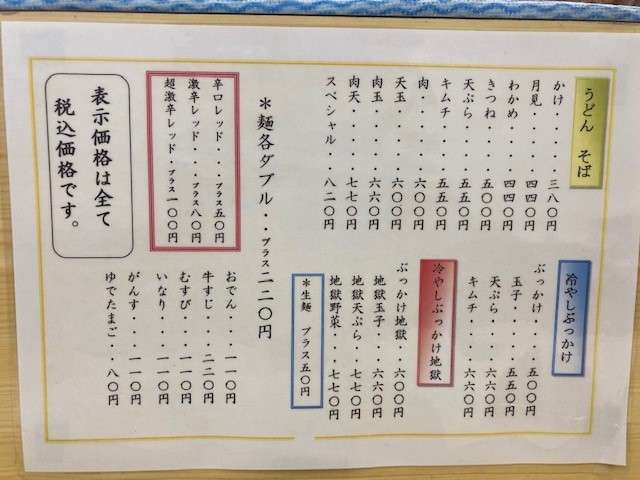 うどん そば
かけ・・・・・三八〇円
月見・・・・四四〇円
わかめ・・・四四〇円
きつね・・・五〇〇円
天ぷら・・・五五〇円
キムチ・・・五五〇円
肉・・・・・六〇〇円
天玉・・・・六〇〇円
肉玉・・・・六六〇円
肉天・・・・七七〇円
スペシャル・・八二〇円
＊麺各ダブル・・プラス二二〇円
辛口レッド・・・プラス五〇円
激辛レッド・・プラス八〇円
超激辛レッド・プラス一〇〇円
表示価格は全て
税込価格です。
冷やしぶっかけ
ぶっかけ・・・・五〇〇円
玉子・・・・五五〇円
天ぷら・・・・六六〇円
キムチ・・・・六六〇円
冷やしぶっかけ地獄
ぶっかけ地獄・・六〇〇円
地獄玉子・・・六六〇円
地獄天ぷら・・七七〇円
地獄野菜・・・七七〇円
＊生麺 プラス五〇円
おでん・・・一一〇円
牛すじ・・・二二〇円
むすび・・・一一〇円
いなり・・・一一〇円
がんす・・・一一〇円
ゆでたまご・・八〇円